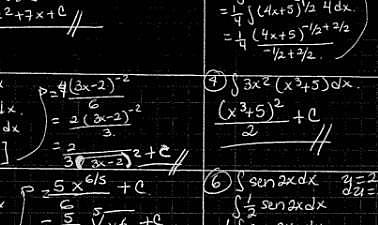 2 + 7x + C
= 1/4 ∫ (4x+5)^1/2 4dx.
= 1/4 (4x+5)^-1/2+2/2 / -1/2+2/2.
P = 4(3x-2)^-2 / 6
= 2(3x-2)^-2 / 3.
= 2 / 3(3x-2)^2 + C
dx.
dx
]
④ ∫ 3x^2 (x^3+5) dx.
(x^3+5)^2 / 2 + C
P = 5x^6/5 / 6 + C
⑥ ∫ sen 2x dx
∫ 1/2 sen 2x dx